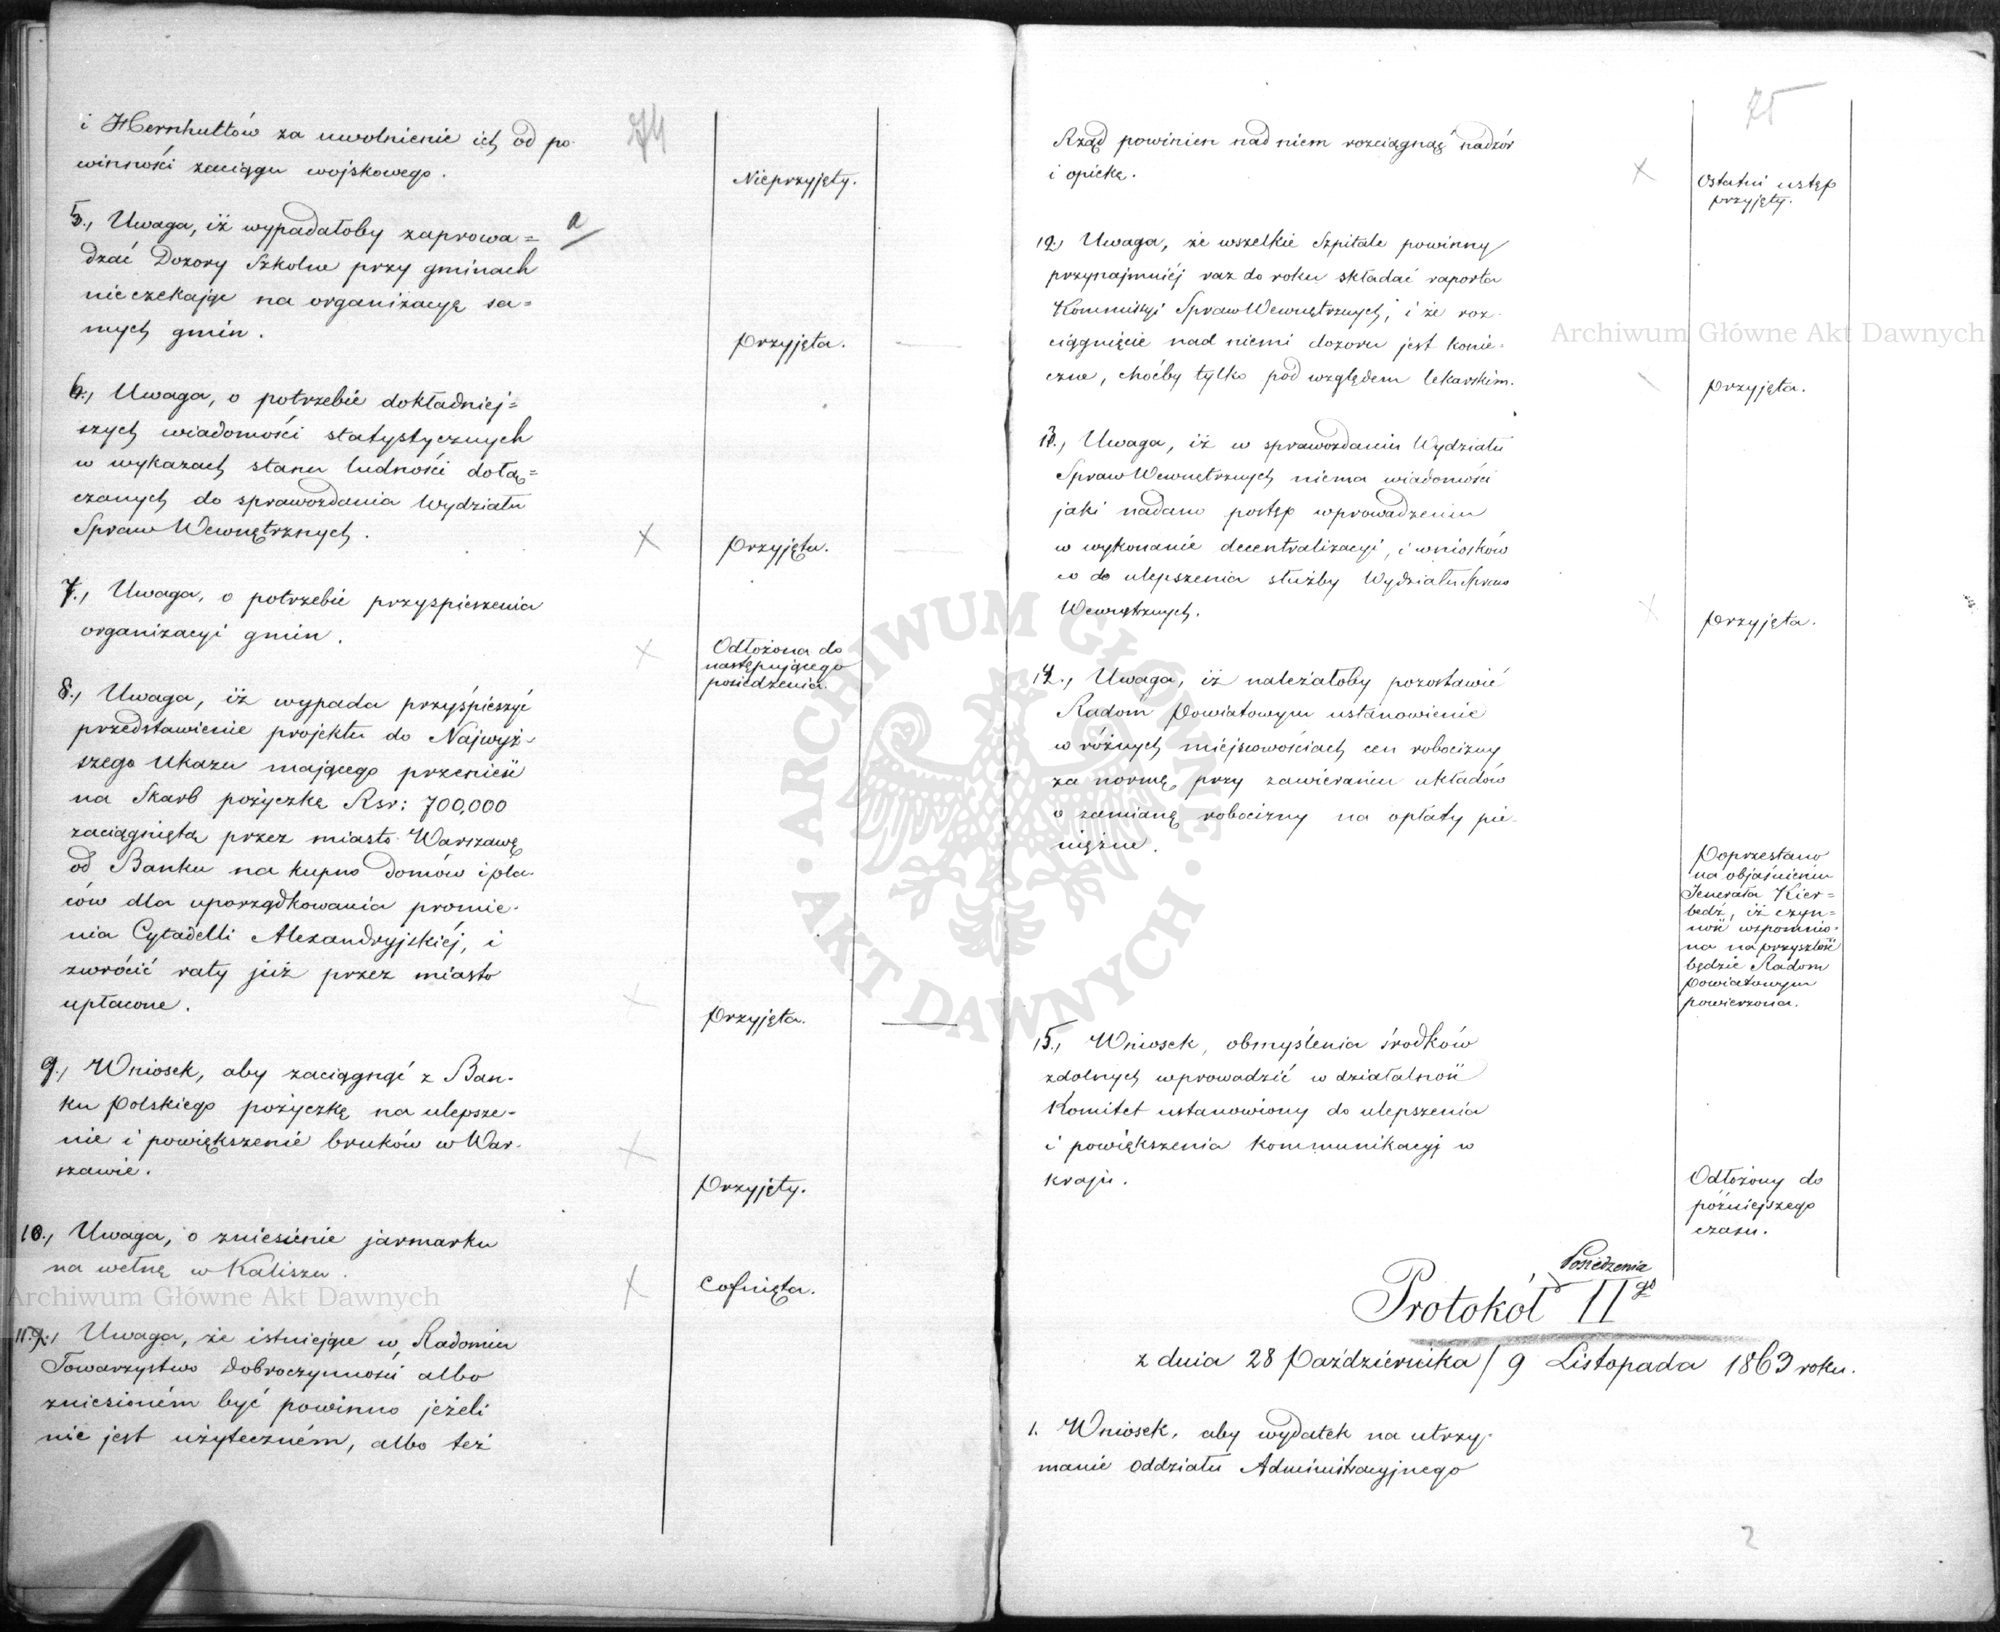 74
i Hernhuttów za uwolnienie ich od po-
winności zaciągu wojskowego.
Nieprzyjęty.
5., Uwaga, iż wypadałoby zaprowa=
dzać Dozory Szkolne przy gminach
nieczekając na organizacyę sa=
mych gmin.
Przyjęta.
6., Uwaga, o potrzebie dokładniej=
szych wiadomości statystycznych
w wykazach stanu ludności dołą=
czanych do sprawozdania Wydziału
Spraw Wewnętrznych.
Przyjęta.
7., Uwaga, o potrzebie przyspieszenia
organizacyi gmin.
Odłożona do
następującego
posiedzenia.
8., Uwaga, iż wypada przyśpieszyć
przedstawienie projektu do Najwyż-
szego Ukazu mającego przenieść
na Skarb pożyczkę Rsr: 700,000
zaciągniętą przez miasto Warszawę
od Banku na kupno domów i pla-
ców dla uporządkowania promie-
nia Cytadelli Alexandryjskiéj, i
zwrócić raty już przez miasto
upłacone.
Przyjęta.
9., Wniosek, aby zaciągnąć z Ban-
ku Polskiego pożyczkę na ulepsze-
nie i powiększenie bruków w War-
szawie.
Przyjęty.
10., Uwaga, o zniesienie jarmarku
na wełnę w Kaliszu.
Cofnięta.
11., Uwaga, że istniejące w Radomiu
Towarzystwo Dobroczynności albo
zniesioném być powinno jeżeli
nie jest użyteczném, albo też
75
Rząd powinien nad niem rozciągnąć nadzór
i opiekę.
Ostatni ustęp
przyjęty.
12., Uwaga, że wszelkie Szpitale powinny
przynajmniéj raz do roku składać raporta
Kommissyi Spraw Wewnętrznych, i że roz-
ciągnięcie nad niemi dozoru jest konie-
czne, choćby tylko pod względem lekarskim.
Przyjęta.
13., Uwaga, iż w sprawozdaniu Wydziału
Spraw Wewnętrznych niema wiadomości
jaki nadano postęp wprowadzeniu
w wykonanie decentralizacyi, i wniosków
co do ulepszenia służby Wydziału Spraw
Wewnętrznych.
Przyjęta.
14., Uwaga, iż należałoby pozostawić
Radom Powiatowym ustanowienie
w różnych miejscowościach cen robocizny
za normę przy zawieraniu układów
o zamianę robocizny na opłaty pie-
niężne.
Poprzestano
na objaśnieniu
Jenerała Kier-
bedź, iż czyn=
ność wspomnio-
na na przyszłość
będzie Radom
Powiatowym
powierzona.
15., Wniosek, obmyślenia środków
zdolnych wprowadzić w działalność
Komitet ustanowiony do ulepszenia
i powiększenia kommunikacyj w
kraju.
Odłożony do
późniejszego
czasu.
Posiedzenia
Protokół IIgo
z dnia 28 Października / 9 Listopada 1863 roku.
1. Wniosek, aby wydatek na utrzy-
manie Oddziału Administracyjnego
Archiwum Główne Akt Dawnych
Archiwum Główne Akt Dawnych
· ARCHIWUM GŁÓWNE · AKT DAWNYCH ·